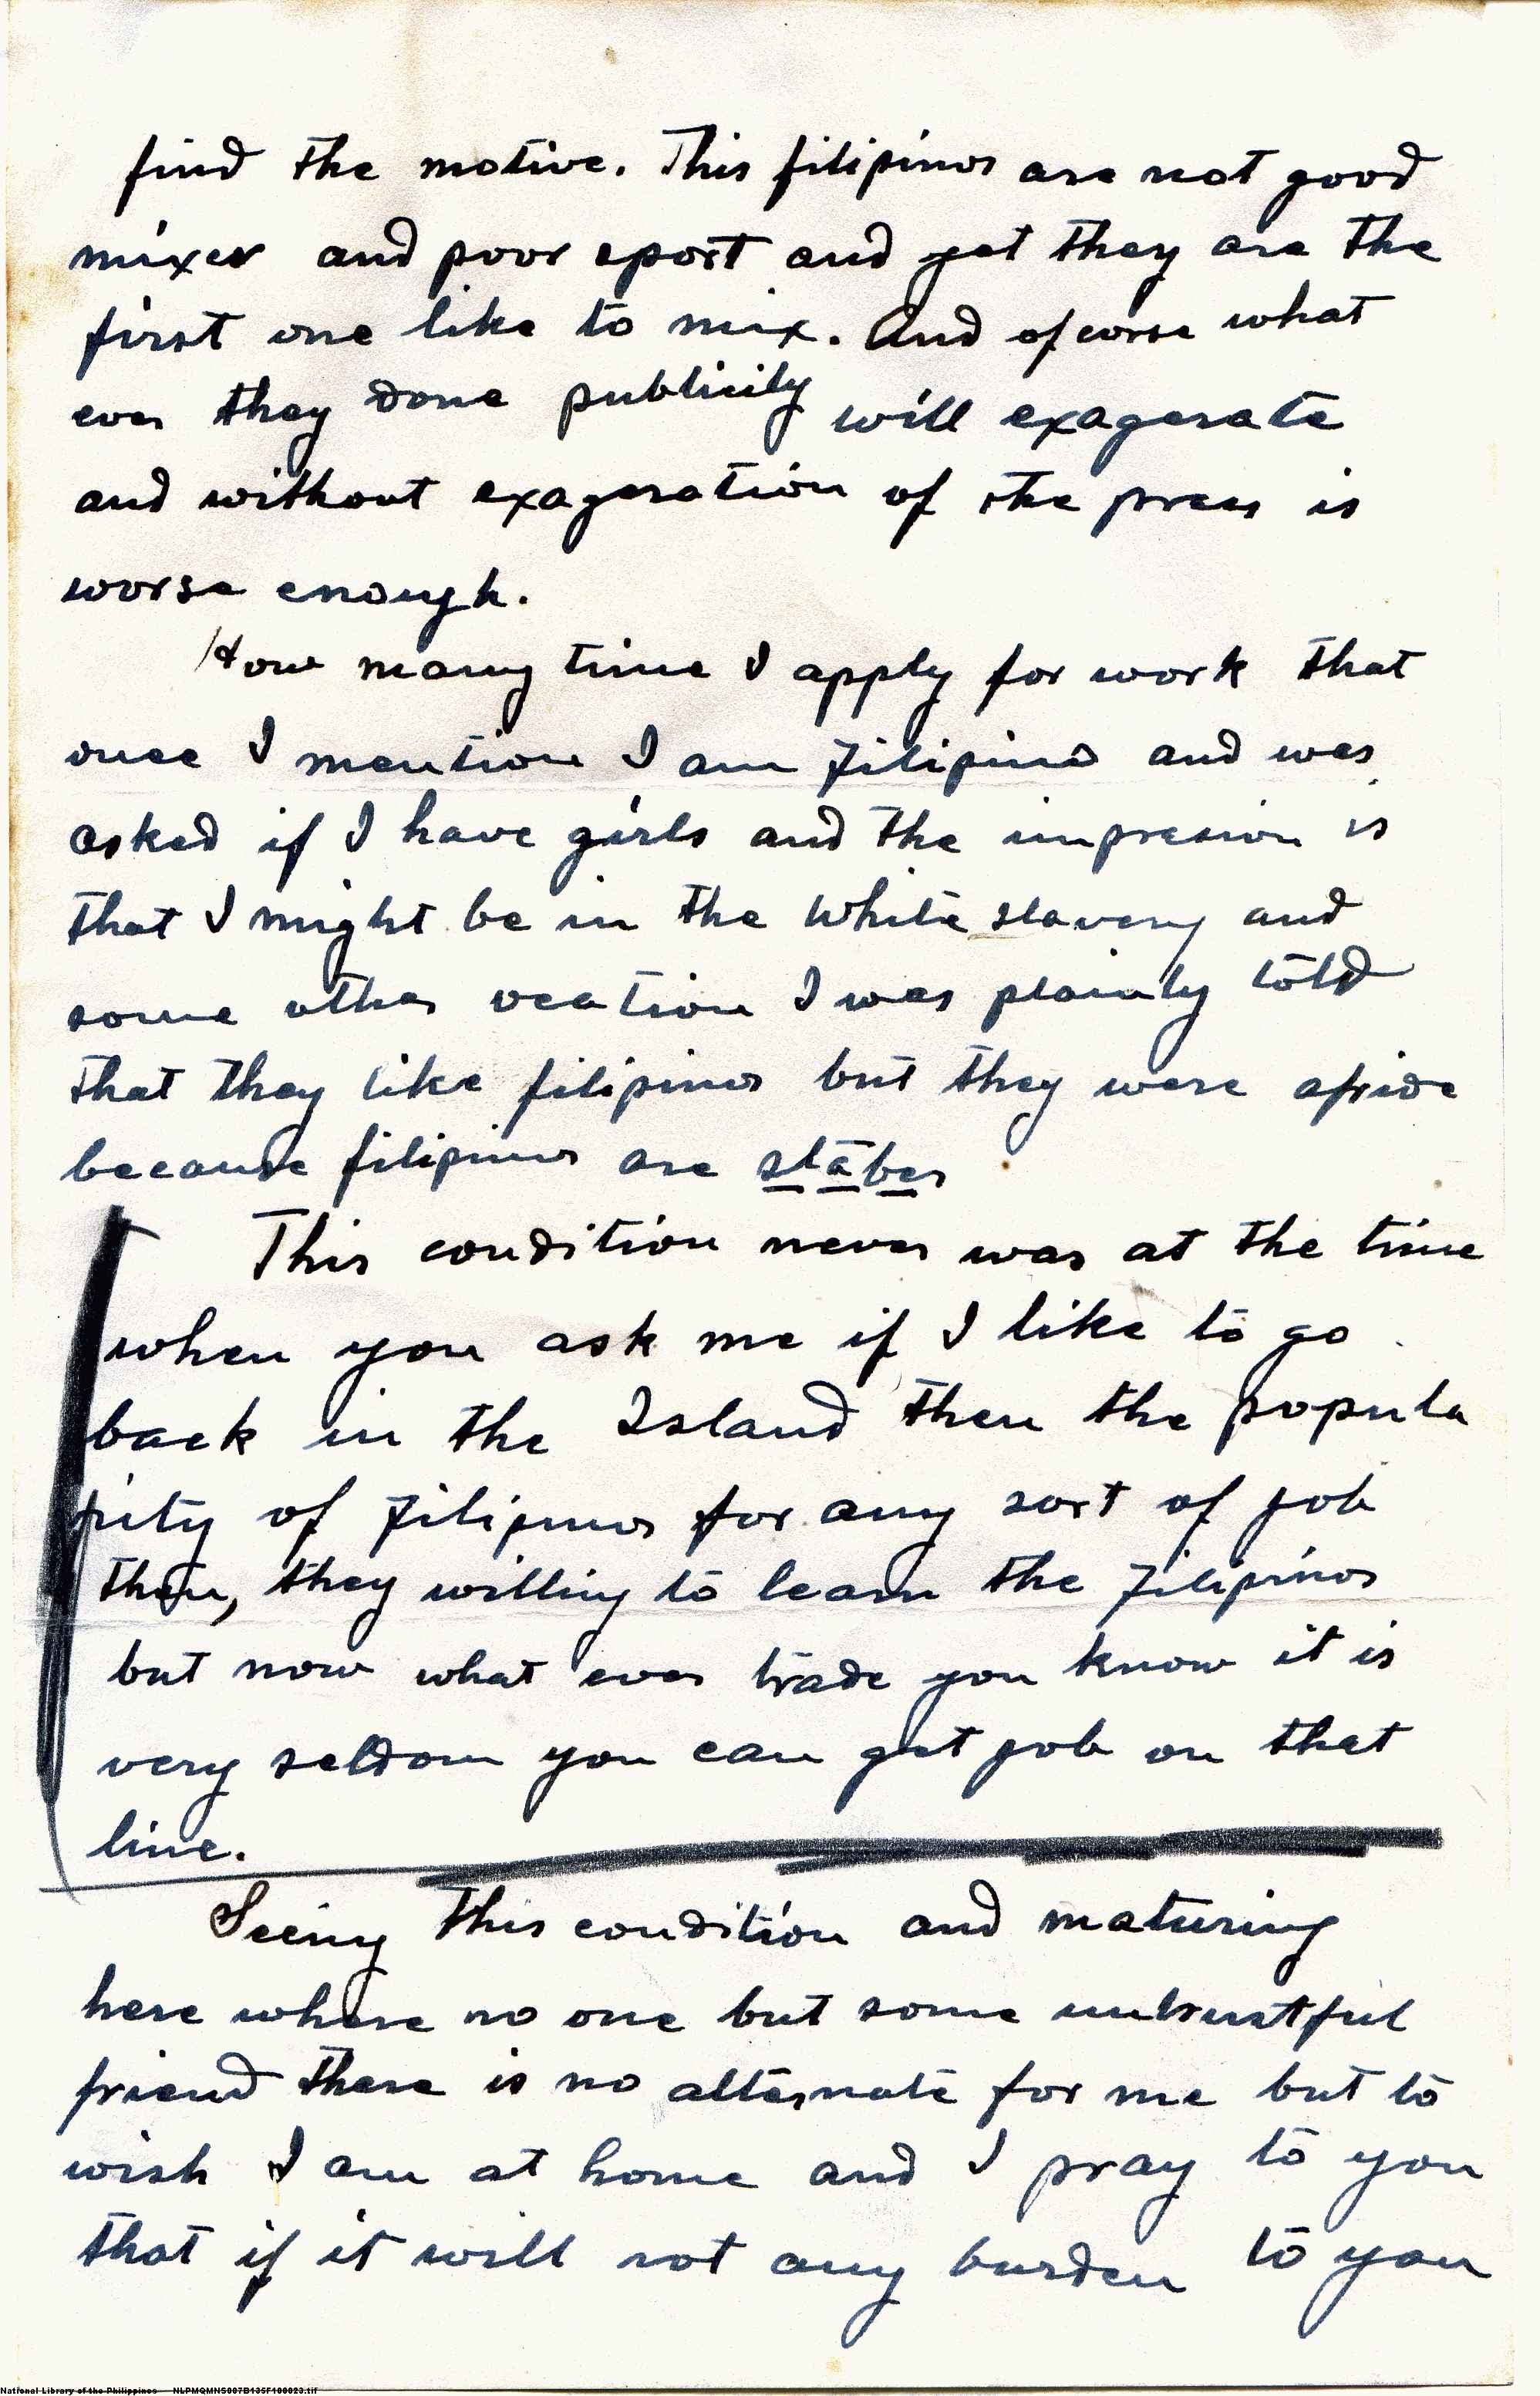 find the motive. This filipinos are not good
mixer and poor sport and yet they are the
first one like to mix. And of corse what
ever they done publicity will exagerate
and without exageration of the press is
worse enough.
How many time I apply for work that
once I mention I am Filipino and was
asked if I have girls and the impresion is
that I might be in the white slavery and
some other ocation I was plainly told
that they like filipinos but they were afride
because filipinos are staber
This condition never was at the time
when you ask me if I like to go
back in the Island then the popula
rity of Filipinos for any sort of job
then, they willing to learn the Filipinos
but now what ever trade you know it is
very seldom you can get job on that
line.
Seeing this condition and maturing
here where no one but some untrustful
friend there is no alternate for me but to
wish I am at home and I pray to you
that if it will not any burden to you
National Library of the Philippines NLPMQMNS007B135F100023.tif